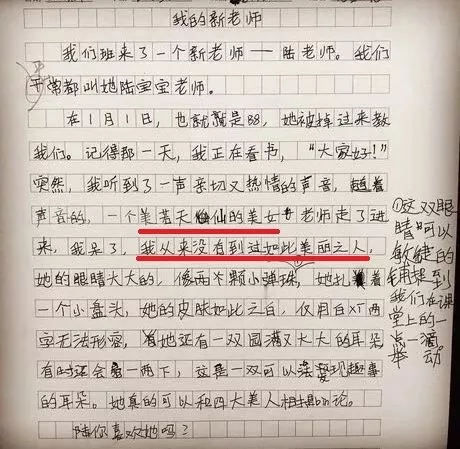 我的新老师
我们班来了一个新老师——陆老师。我们
平常都叫她陆宝宝老师。
在1月1日，也就是，她被掉过来教
我们。记得那一天，我正在看书，“大家好！”
突然，我听到了一声亲切又热情的声音，趁着
声音的，一个美若天仙的美女老师走了进
来，我呆了，我从来没有到过如此美丽之人，
她的眼睛大大的，像两颗小弹珠，她扎着
一个小盘头，她的皮肤如此之白，仅用白两
字无法形容，她还有一双圆满又大大的耳朵
有时还会一两下，这是一双可以发现趣事
的耳朵。她真的可以和四大美人相提bin论。
陆你喜欢她吗？
①这双眼
睛可以
敏捷的
捕捉到
我们在课
堂上的一
点一滴
举动